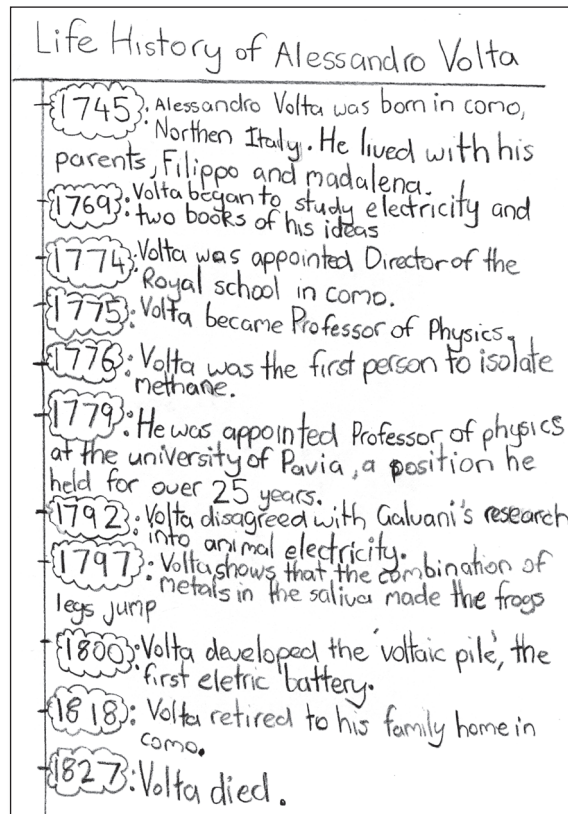 Life History of Alessandro Volta
1745: Alessandro Volta was born in como,
Northen Italy. He lived with his
parents, Filippo and madalena.
1769: Volta began to study electricity and
two books of his ideas
1774: Volta was appointed Director of the
Royal school in como.
1775: Volta became Professor of Physics.
1776: Volta was the first person to isolate
methane.
1779: He was appointed Professor of physics
at the university of Pavia, a position he
held for over 25 years.
1792: Volta disagreed with Galvani's research
into animal electricity.
1797: Volta shows that the combination of
metals in the saliva made the frogs
legs jump
1800: Volta developed the 'voltaic pile', the
first eletric battery.
1818: Volta retired to his family home in
como.
1827: Volta died.